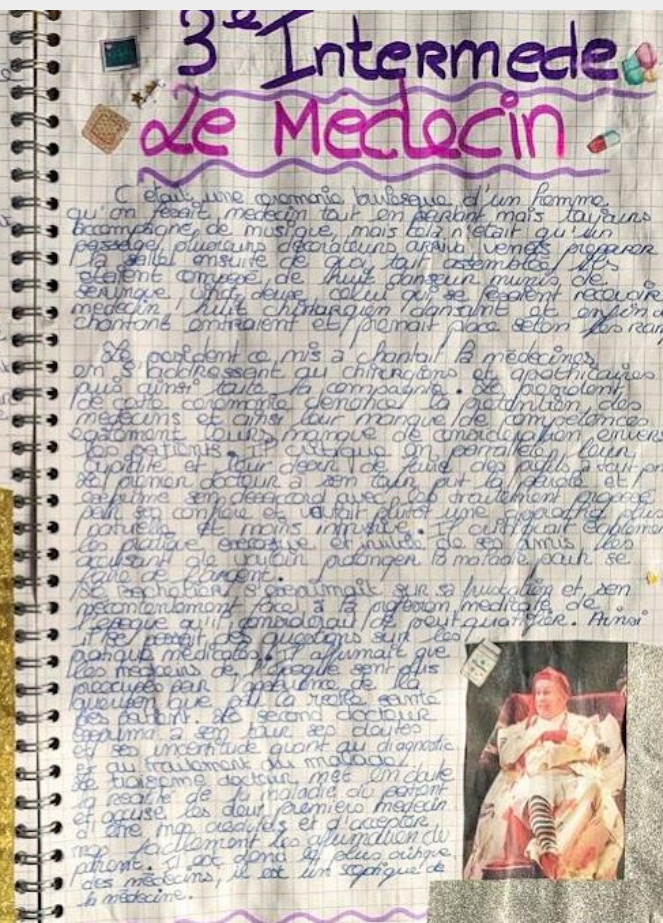 3e Intermede
Le Medecin
C'était une ceremonie burlesque d'un homme
qu'on fesait medecin tout en parlant mais toujours
accompagné de musique, mais cela n'était qu'un
passage, plusieurs décorateurs arriva venets preparer
la salle, ensuite de quoi tout assemblée les
etaient composé de huit danseur munis de
seringue vingt deux, celui qui se fesaient recevoir
medecin, huit chirurgien dansant et enfin
chantant entraient et prenait place selon les rang
Le president ce mis a chantait la médecines
en s'addressent au chirurgiens et apothicaires
puis ainsi toute la compagnie. Le president
de cette ceremonie denonce la prétention des
medecins et ainsi leur manque de compétences
egalement leurs manque de consideration envers
les patients. Il critique en parralele leur
cupidité et leur desir de faire des profits a tout-prix
Le premier docteur a son tour prit la parole et
exprime son desaccord avec les traitement proposé
par son confrere et voulait plutot une approche plus
naturelle et moins intrusive. Il critiquait également
les pratique excessive et inutile de ses amis les
accusant de vouloir prolonger la maladie pour se
faire de l'argent.
Le bachelier s'exprimait sur sa frustration et son
mécontentement face à la profession medicale de
l'epoque qu'il considerait de Ainsi
il se posait des questions sur les
pratique médicales. Il affirmait que
les medecins de l'epoque sont plus
preoccupés par l'apparence de la
guerison que par la reelle santé
des patient. Le second docteur
exprima a son tour ses doutes
et ses incertitude quant au diagnostic
et au traitement du malade.
Le troisieme docteur met en doute
la realité de la maladie du patient
et accuse les deux premiers medecin
d'etre trop credules et d'accepter
trop facilement les affirmation du
patient. Il est donc le plus critique
des médecins, il est un sceptique de
la médecine.